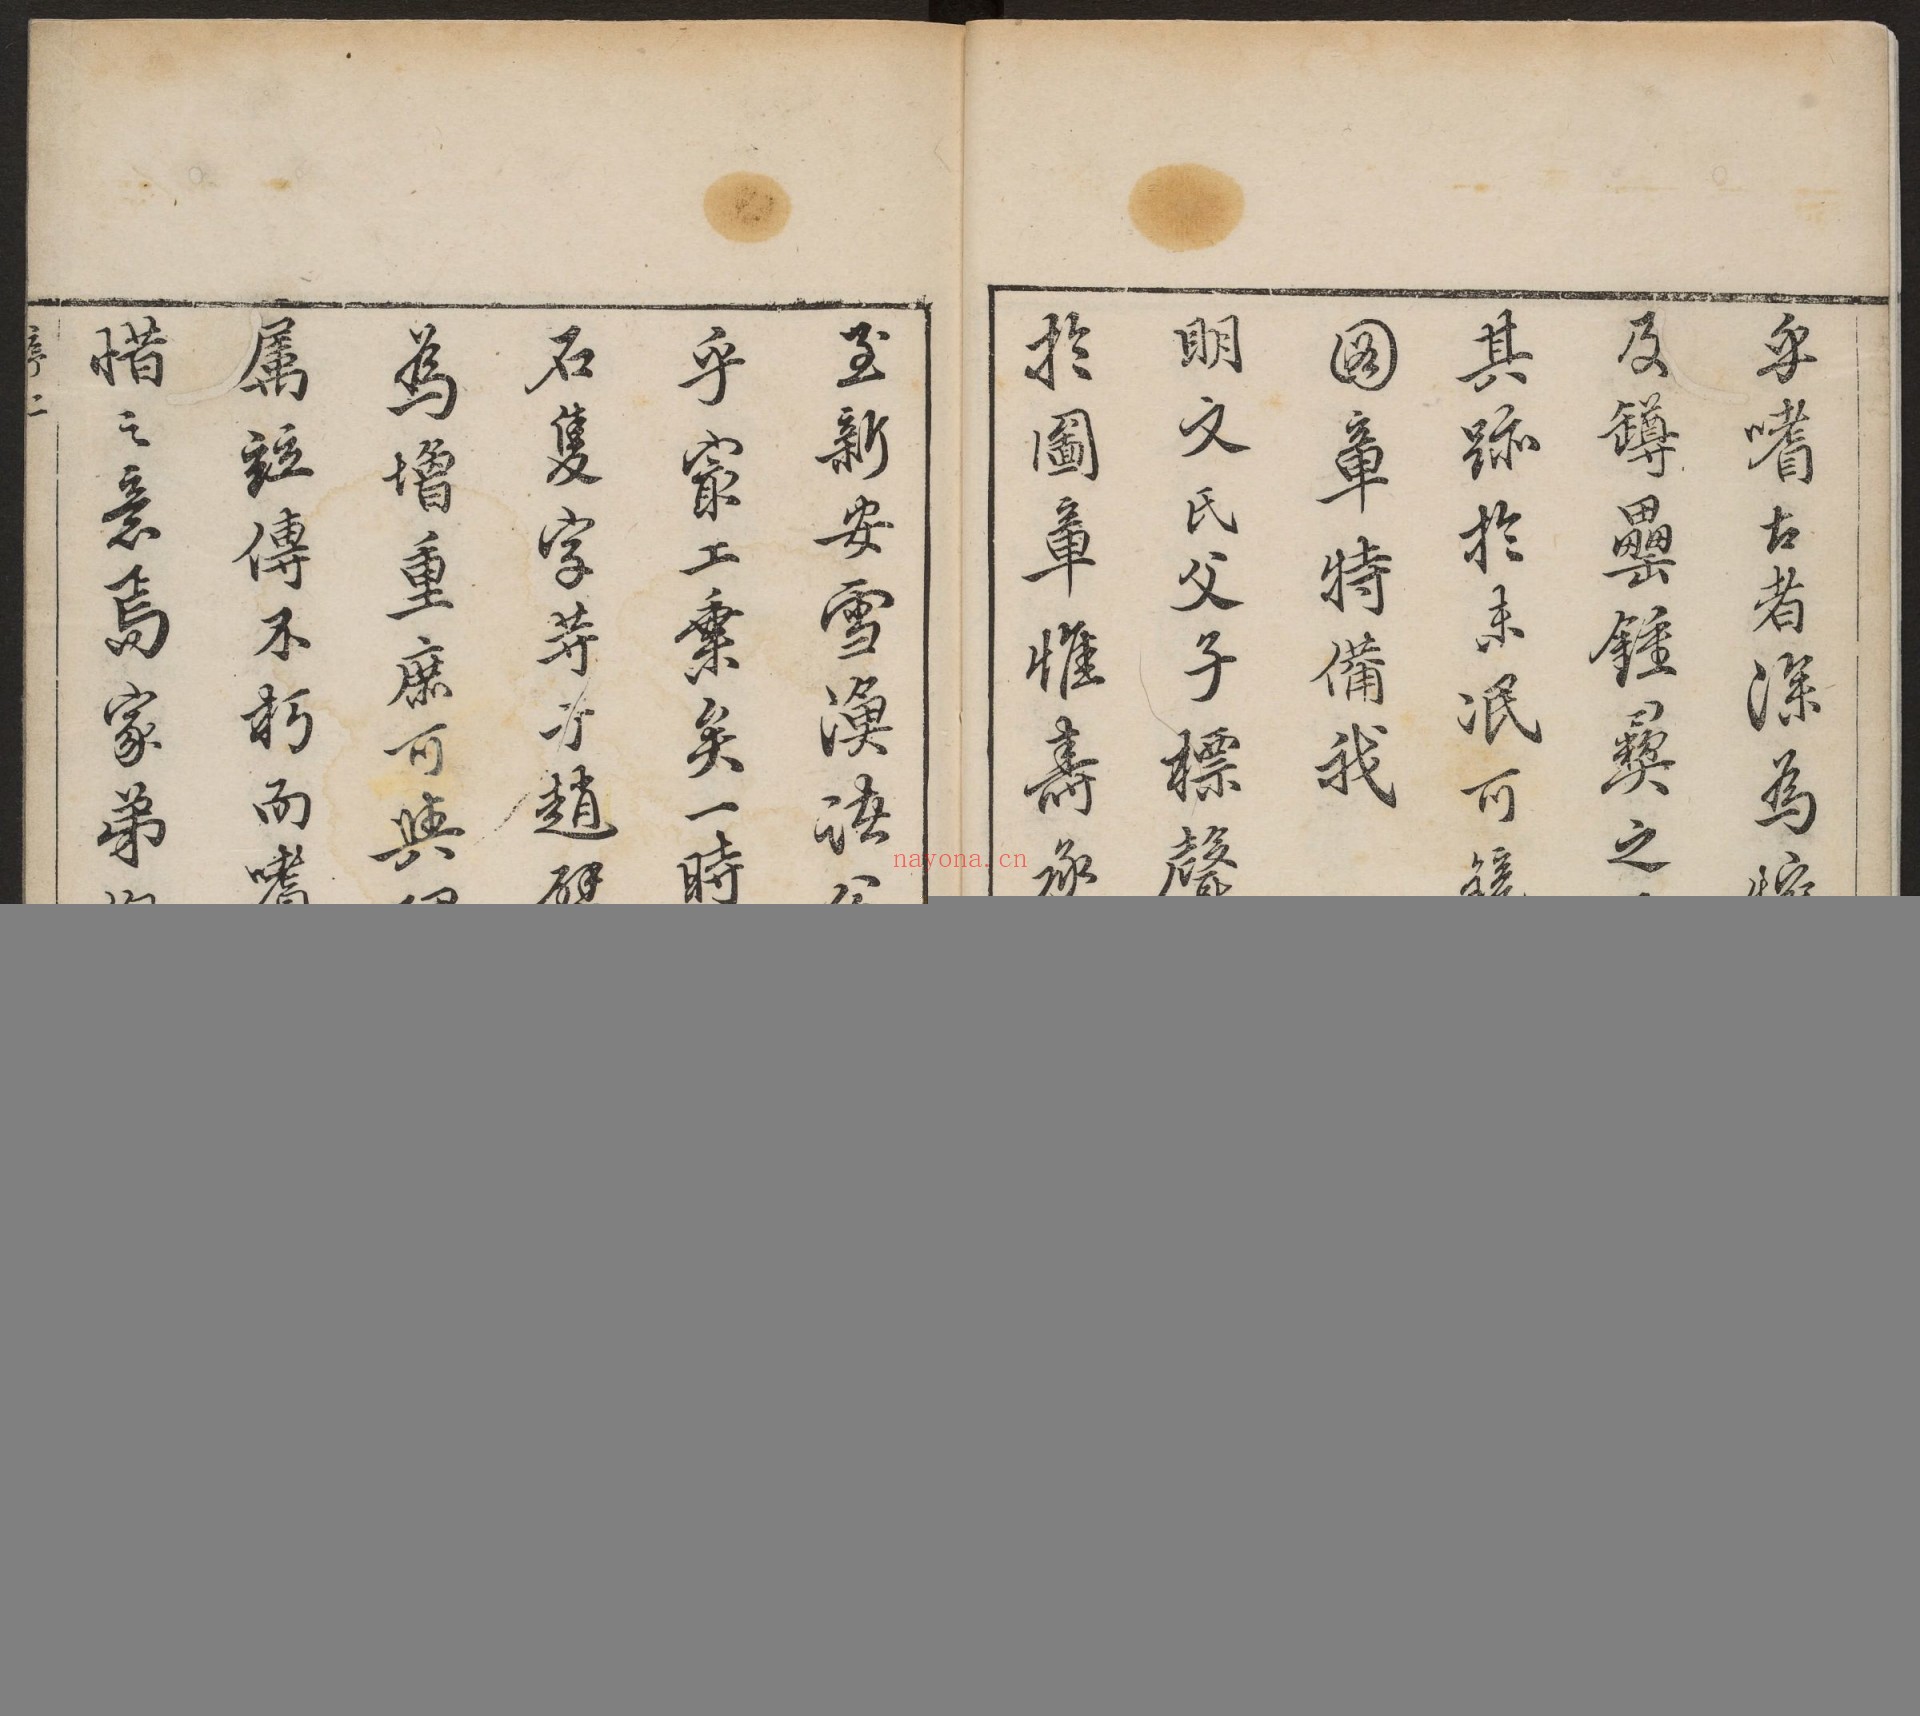 乎嗜古者深為
及罇罍鍾彝之
其跡於未泯可
圖章特備我
明文氏父子標聲
於圖章惟壽承
至新安雪漁
乎最工棄矣一時
石隻字等於趙璧
為增重庶可與
屬誌傳不朽而嗜
惜之意焉家弟
序二
nayona.cn